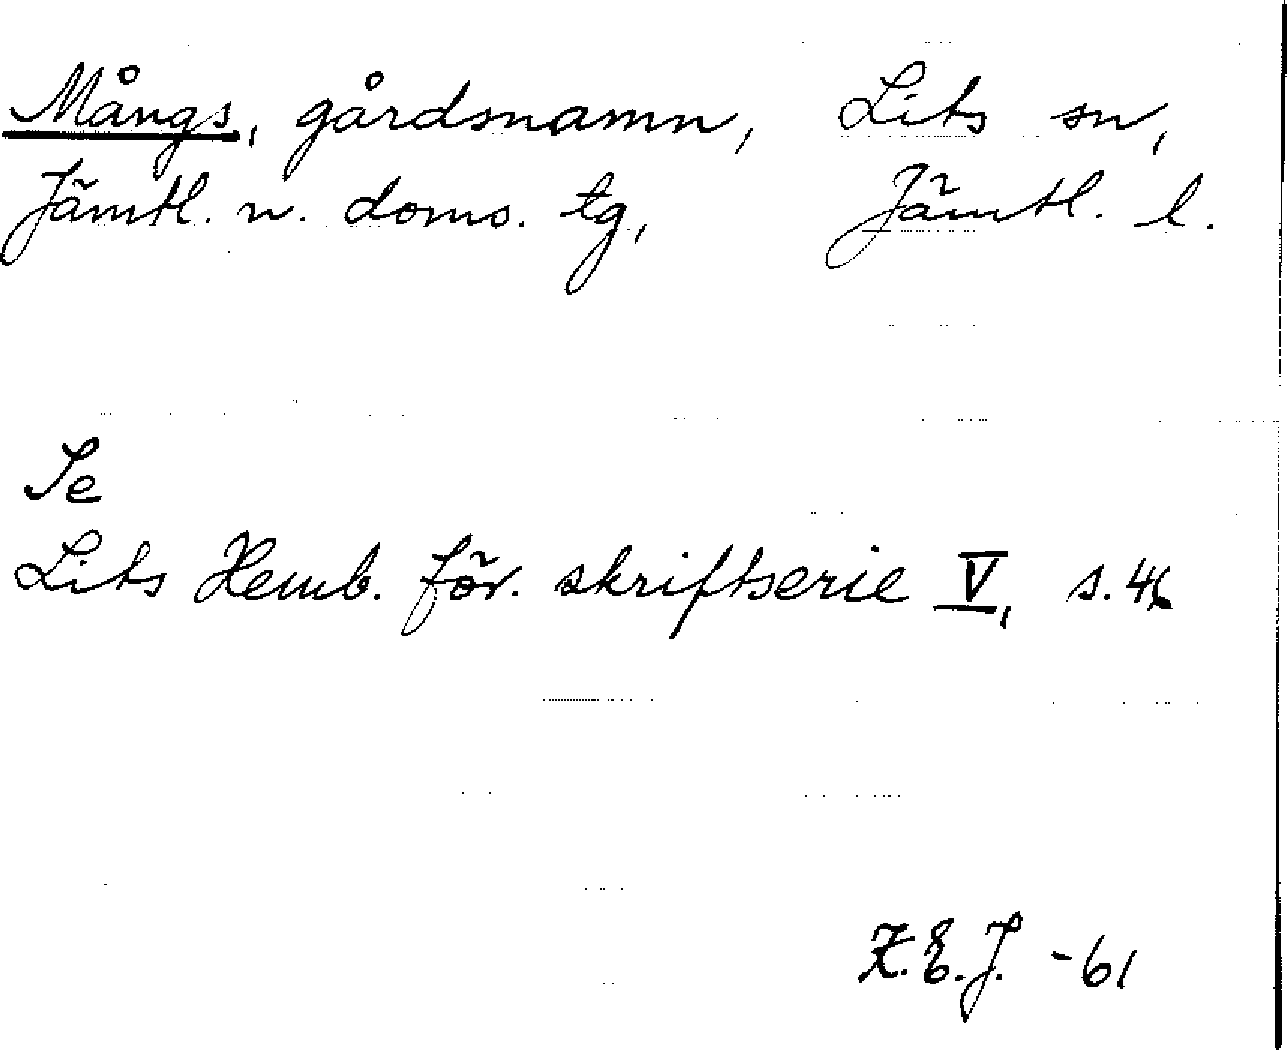 Mångs, gårdsnamn, Lits sn,
Jämtl. n. doms. tg, Jämtl. l.
Se
Lits Hemb. för. skriftserie V, s. 46
K.E.J. -61